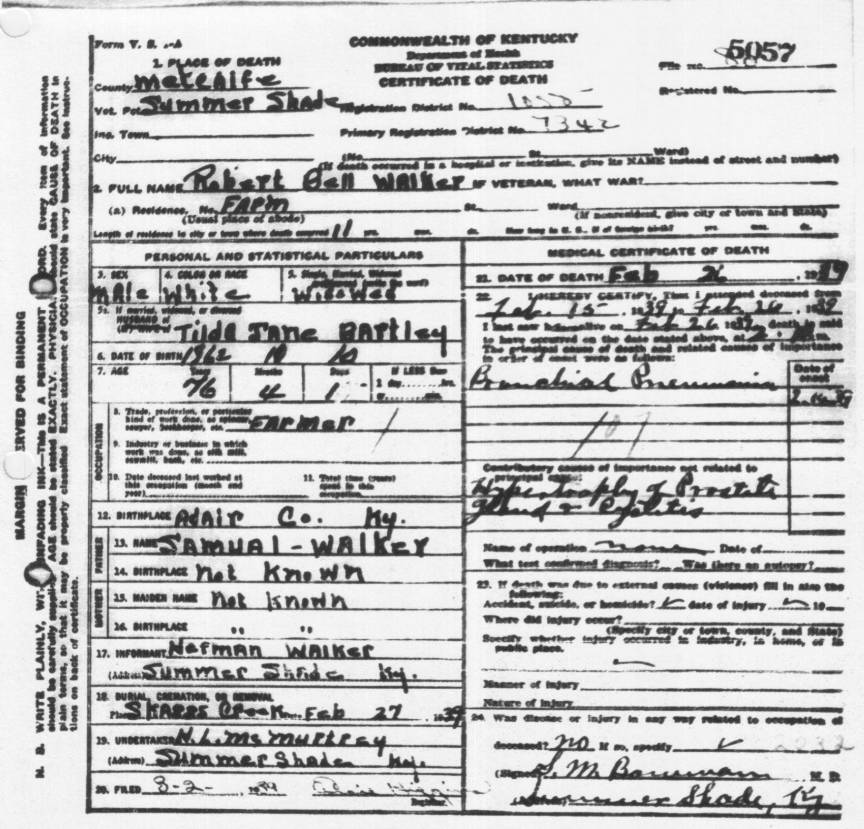 Form V. S. 1-A
COMMONWEALTH OF KENTUCKY
Department of Health
BUREAU OF VITAL STATISTICS
CERTIFICATE OF DEATH
File No. 5057
Registered No.
1. PLACE OF DEATH
County Metcalfe
Vot. Pct. Summer Shade
Registration District No. 1055
Inc. Town
Primary Registration District No. 7342
City (No. St. Ward)
(If death occurred in a hospital or institution, give its NAME instead of street and number)
2. FULL NAME Robert Bell Walker IF VETERAN, WHAT WAR?
(a) Residence. No. Farm St. Ward.
(Usual place of abode) (If nonresident, give city or town and State)
Length of residence in city or town where death occurred 11 yrs. mos. ds. How long in U. S., if of foreign birth? yrs. mos. ds.
PERSONAL AND STATISTICAL PARTICULARS
3. SEX 4. COLOR OR RACE 5. Single, Married, Widowed
Male White Widowed
5a. If married, widowed, or divorced
HUSBAND of
Tilda Jane Bartley
6. DATE OF BIRTH 1962 10 10
7. AGE Years Months Days If LESS than
1 day hrs.
76 4 1 or min.
OCCUPATION
8. Trade, profession, or particular
kind of work done, as spinner,
sawyer, bookkeeper, etc. Farmer
9. Industry or business in which
work was done, as silk mill,
sawmill, bank, etc.
10. Date deceased last worked at
this occupation (month and
year)
11. Total time (years)
spent in this
occupation
12. BIRTHPLACE Adair Co. Ky.
FATHER
13. NAME Samual - Walker
14. BIRTHPLACE Not Known
MOTHER
15. MAIDEN NAME Not Known
16. BIRTHPLACE " "
17. INFORMANT Herman Walker
(Address) Summer Shade Ky.
18. BURIAL, CREMATION, OR REMOVAL
Place Skaggs Creek Feb 27, 1939
19. UNDERTAKER N.L. McMurtrey
(Address) Summer Shade Ky.
20. FILED 3-2-, 1939
Registrar
MEDICAL CERTIFICATE OF DEATH
21. DATE OF DEATH Feb 26, 1939
22. I HEREBY CERTIFY, That I attended deceased from
Feb. 15, 1939, Feb. 26, 1939
I last saw him alive on Feb 26 1939, death is said
to have occurred on the date stated above, at
The principal cause of death and related causes of importance
in order of onset were as follows:
Date of
onset
Bronchial Pneumonia
107
Contributory causes of importance not related to
principal cause:
Hypertrophy of Prostate
Gland & Cystitis
Name of operation none Date of
What test confirmed diagnosis? Was there an autopsy?
23. If death was due to external causes (violence) fill in also the
following:
Accident, suicide, or homicide? ✓ date of injury 19
Where did injury occur?
(Specify city or town, county, and State)
Specify whether injury occurred in industry, in home, or in
public place.
Manner of injury
Nature of injury
24. Was disease or injury in any way related to occupation of
deceased? No If so, specify ✓
(Signed) M. D.
(Address) Summer Shade, Ky
MARGIN RESERVED FOR BINDING
N. B. WRITE PLAINLY, WITH UNFADING INK—THIS IS A PERMANENT RECORD. Every item of information
should be carefully supplied. AGE should be stated EXACTLY. PHYSICIANS should state CAUSE OF DEATH in
plain terms, so that it may be properly classified. Exact statement of OCCUPATION is very important. See instruc-
tions on back of certificate.